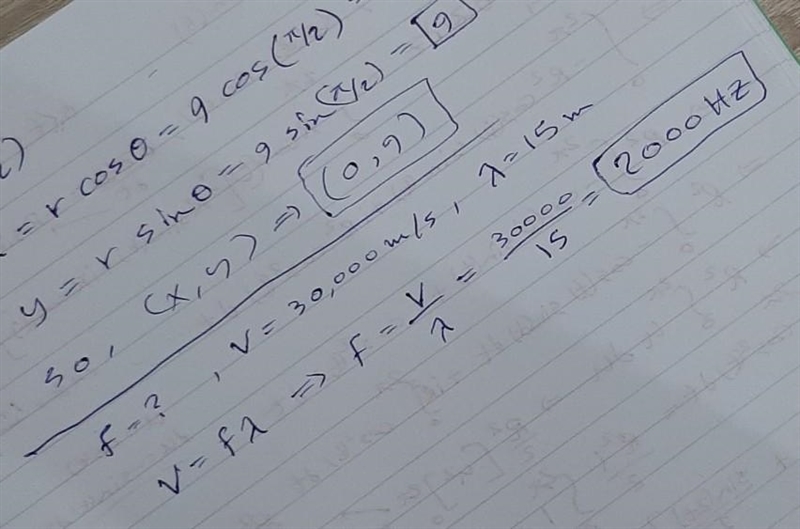 = r cosθ = 9 cos(π/2) =
y = r sinθ = 9 sin(π/2) = 9
so, (x,y) ⇒ (0,9)
f = ? , v = 30,000 m/s, λ = 15 m
v = fλ ⇒ f = v/λ = 30000/15 = 2000 Hz